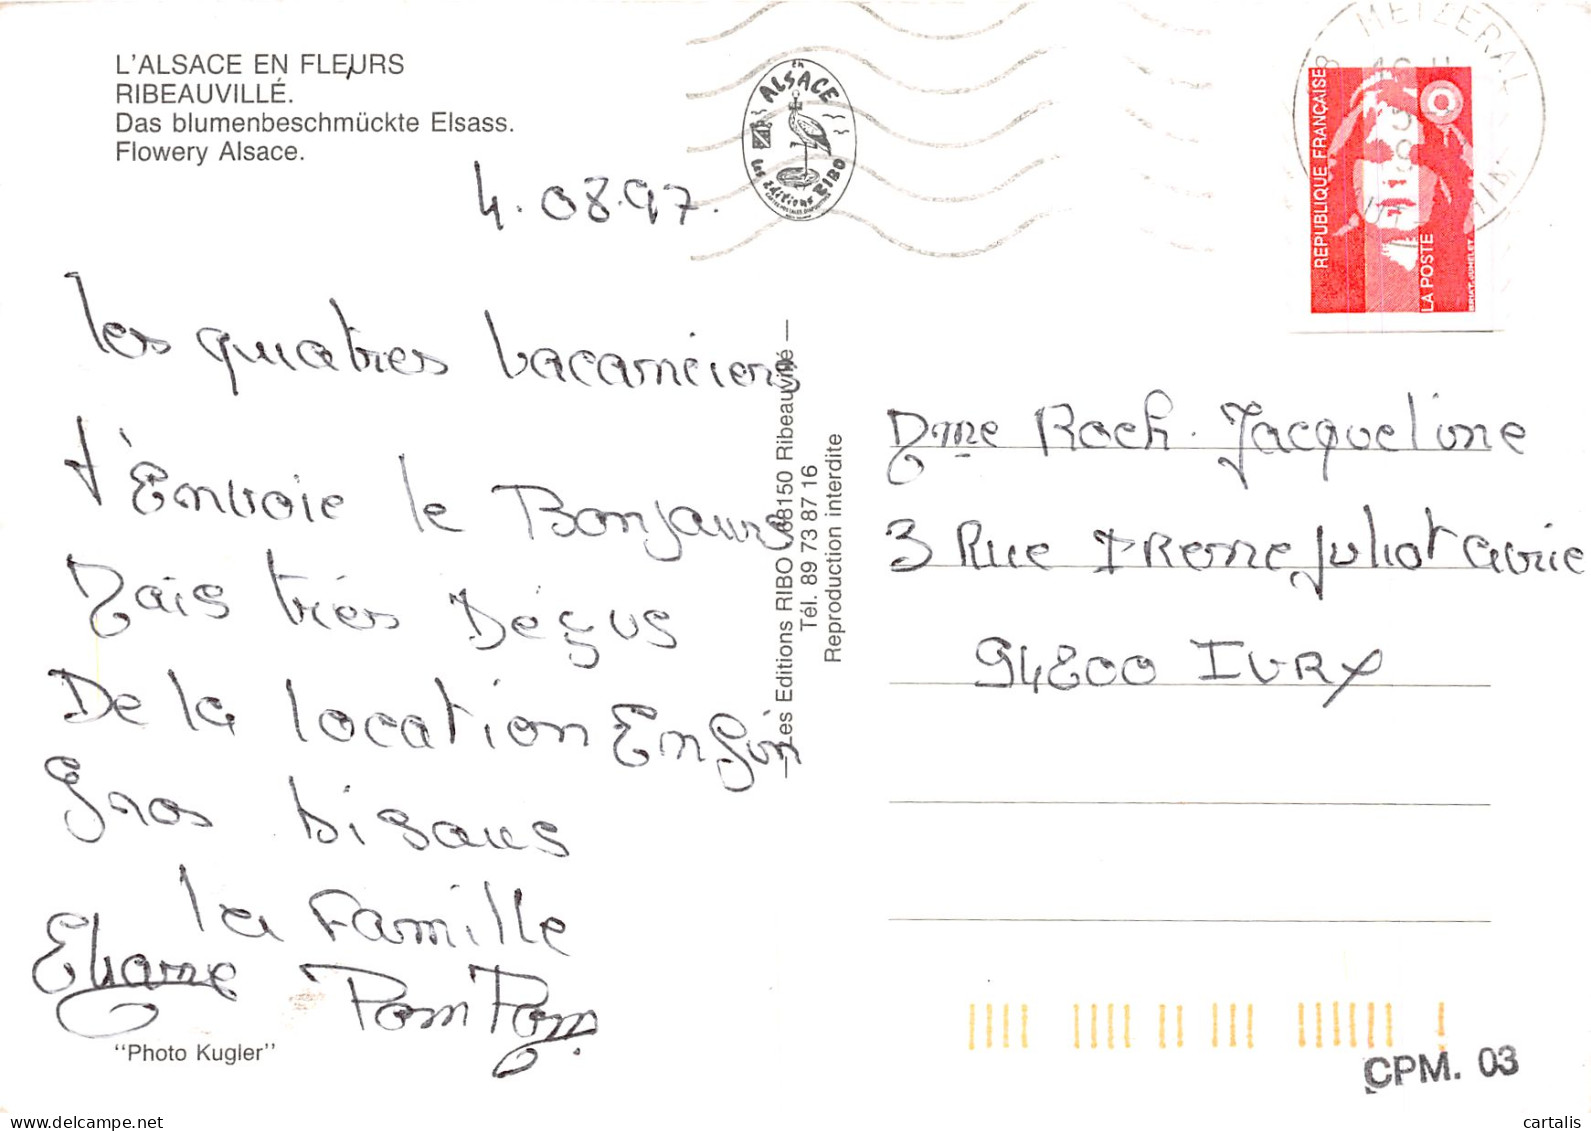 L'ALSACE EN FLEURS
RIBEAUVILLÉ.
Das blumenbeschmückte Elsass.
Flowery Alsace.
4.08.97.
les quatres vacanciers
t'Envoie le Bonjours
Mais très Déçus
De la location Enfin
Gros bisous
la Famille
Eliane PomPom
"Photo Kugler"
en
ALSACE
Les Editions RIBO
Les Editions RIBO 68150 Ribeauvillé
Tél. 89 73 87 16
Reproduction interdite
METZERAL
RÉPUBLIQUE FRANÇAISE
LA POSTE
Mme Roch. Jacqueline
3 Rue IRene Juliot Curie
94200 IVRY
CPM. 03
cartalis
www.delcampe.net